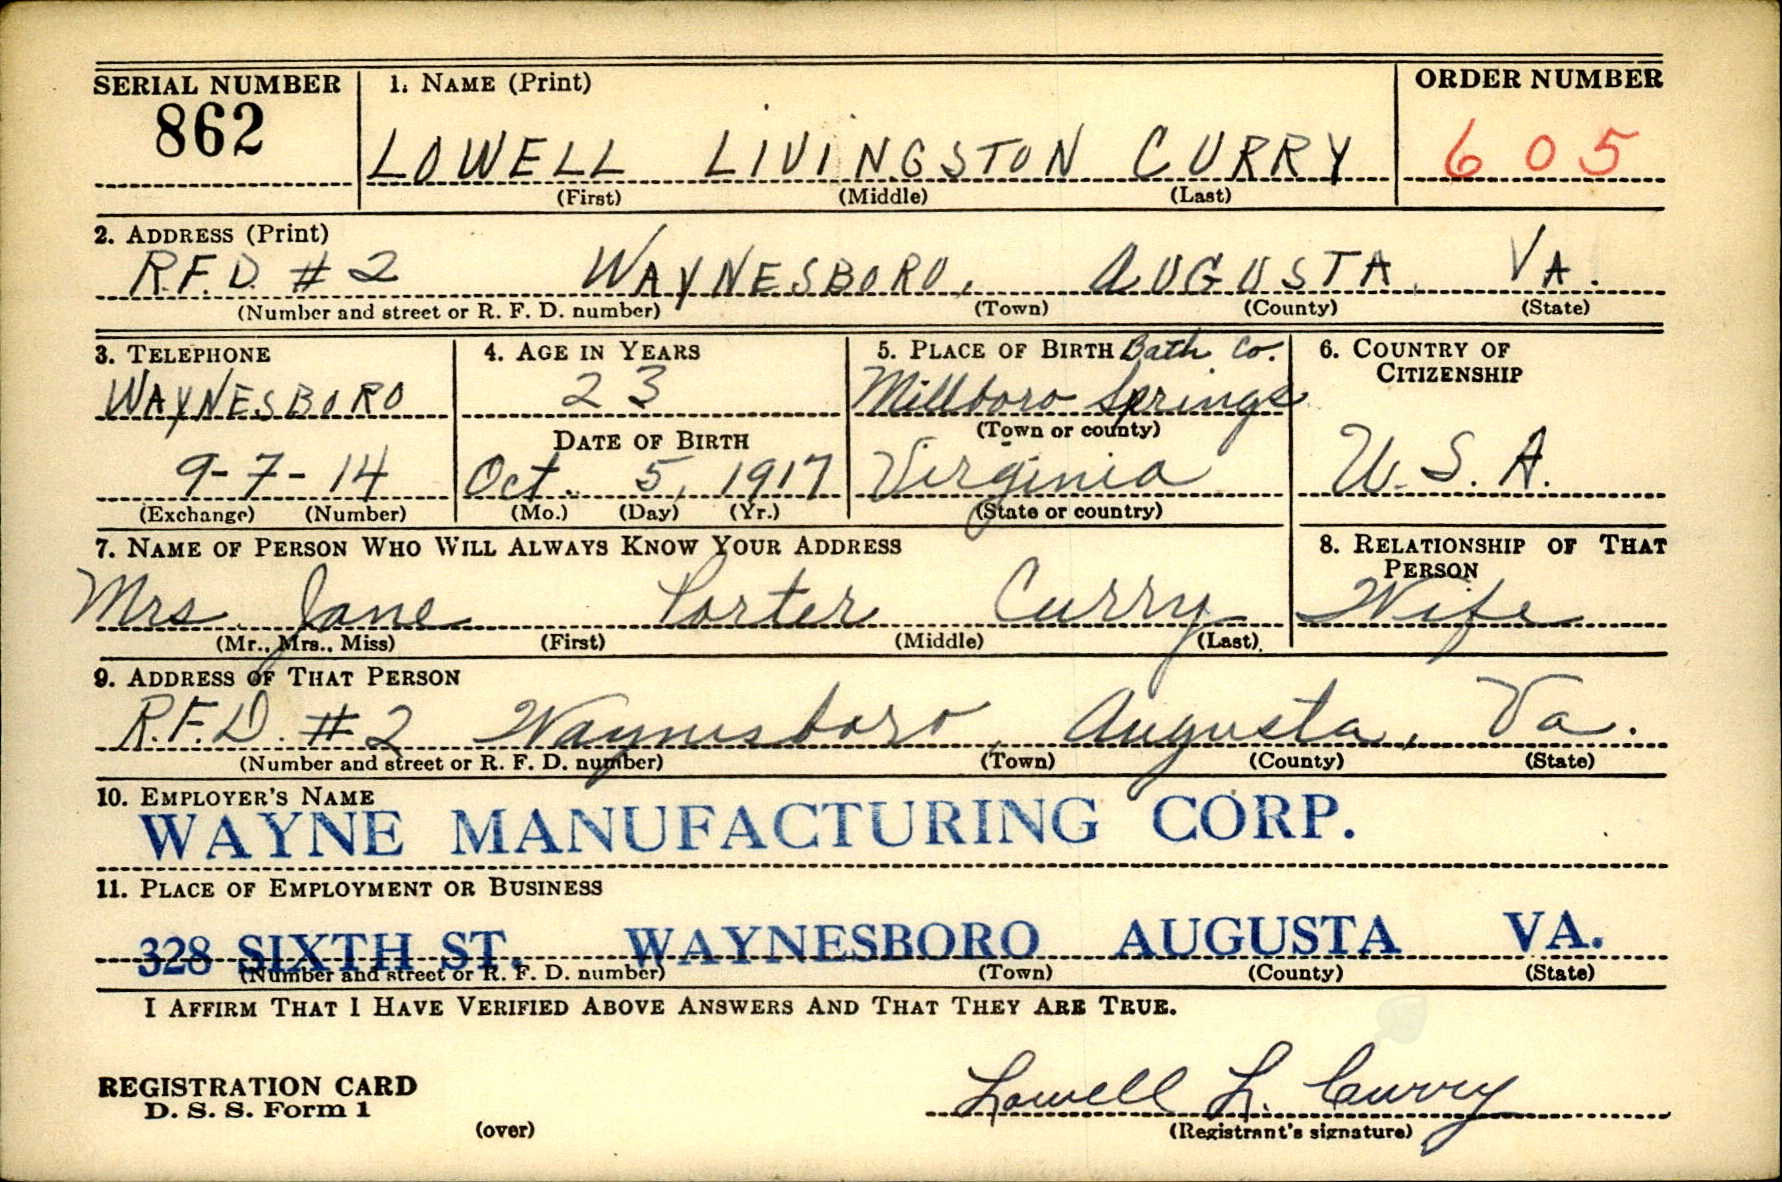 SERIAL NUMBER 1. NAME (Print) ORDER NUMBER
862 LOWELL LIVINGSTON CURRY 605
(First) (Middle) (Last)
2. ADDRESS (Print)
R.F.D. #2 WAYNESBORO, AUGUSTA, VA.
(Number and street or R. F. D. number) (Town) (County) (State)
3. TELEPHONE 4. AGE IN YEARS 5. PLACE OF BIRTH Bath Co. 6. COUNTRY OF CITIZENSHIP
WAYNESBORO 23 Millboro Springs
DATE OF BIRTH (Town or county)
9-7-14 Oct. 5, 1917 Virginia U.S.A.
(Exchange) (Number) (Mo.) (Day) (Yr.) (State or country)
7. NAME OF PERSON WHO WILL ALWAYS KNOW YOUR ADDRESS 8. RELATIONSHIP OF THAT PERSON
Mrs. Jane Porter Curry Wife
(Mr., Mrs., Miss) (First) (Middle) (Last)
9. ADDRESS OF THAT PERSON
R.F.D. #2 Waynesboro, Augusta, Va.
(Number and street or R. F. D. number) (Town) (County) (State)
10. EMPLOYER'S NAME
WAYNE MANUFACTURING CORP.
11. PLACE OF EMPLOYMENT OR BUSINESS
328 SIXTH ST. WAYNESBORO AUGUSTA VA.
(Number and street or R. F. D. number) (Town) (County) (State)
I AFFIRM THAT I HAVE VERIFIED ABOVE ANSWERS AND THAT THEY ARE TRUE.
REGISTRATION CARD
D. S. S. Form 1 Lowell L. Curry
(over) (Registrant's signature)